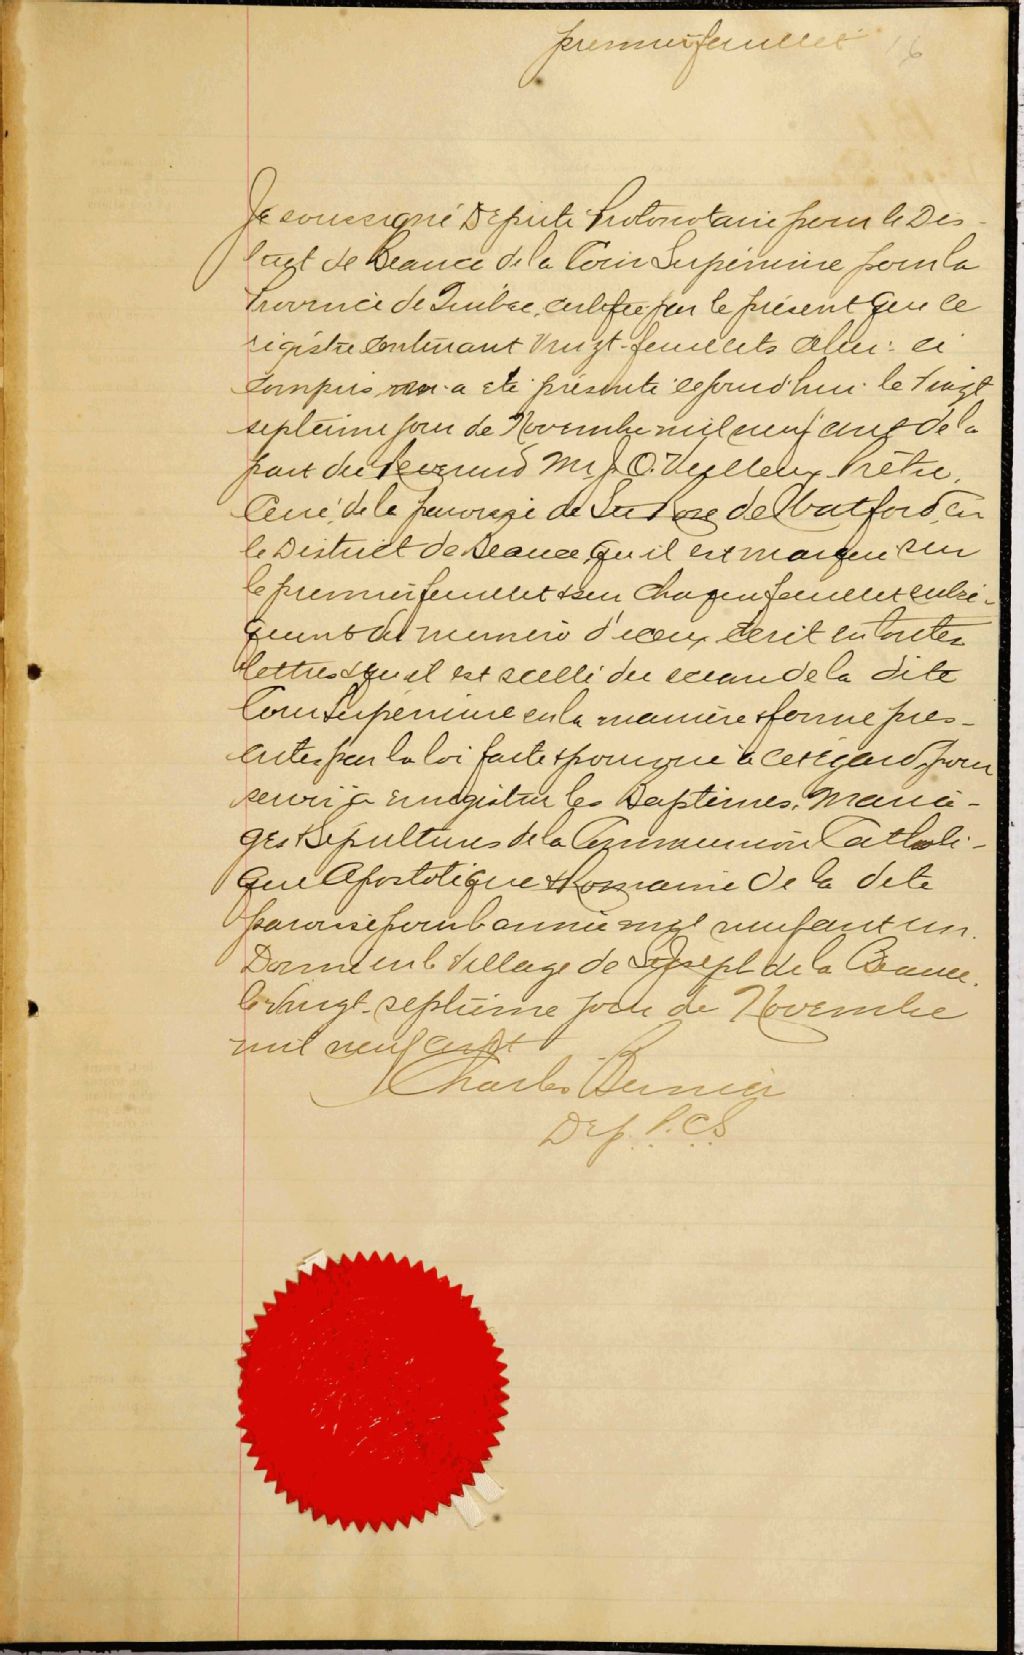 premier feuillet
Je soussigné Député Protonotaire pour le Dis-
trict de Beauce de la Cour Supérieure pour la
Province de Québec, certifie par le présent que ce
régistre contenant Vingt-feuillets celui-ci
compris m'a été présenté ce jourd'hui le Vingt
septième jour de Novembre mil neuf cent de la
part du Reverend Mr J. O. Veilleux Prêtre,
Curé de la paroisse de Ste Rose de Watford, en
le District de Beauce, qu'il est marqué sur
le premier feuillet & sur chaque feuillet subsé-
quent du numéro d'iceux écrit en toutes
lettres & qu'il est scellé du sceau de la dite
Cour Supérieure en la manière & forme pres-
crites par la loi faite & pourvue à cet égard, pour
servir à enregistrer les Baptêmes, Maria-
ges & Sépultures de la Communion Catholi-
que Apostolique & Romaine de la dite
paroisse pour l'année mil neuf cent un.
Donné en le Village de St Joseph de la Beauce.
le Vingt-septième jour de Novembre
mil neuf cent
Charles Bernier
Dep. P.C.S